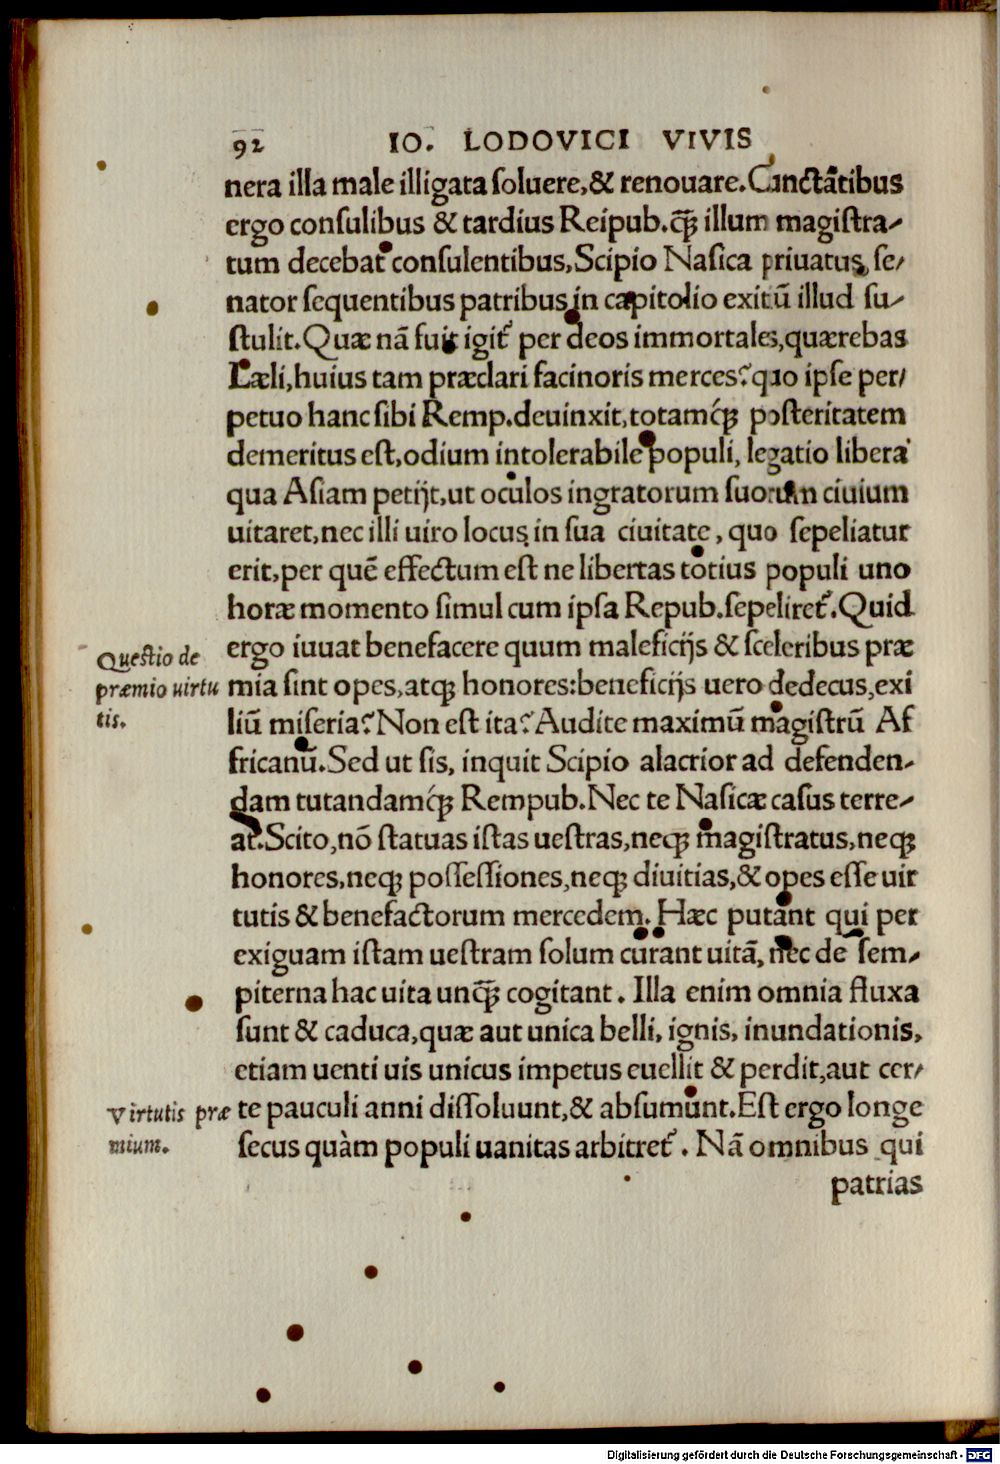 92 IO. LODOVICI VIVIS
nera illa male illigata ſoluere,& renouare.Cunctãtibus
ergo conſulibus & tardius Reipub.q̃ꝫ illum magiſtra-
tum decebat conſulentibus,Scipio Naſica priuatus, ſe-
nator ſequentibus patribus in capitolio exitũ illud ſu-
ſtulit.Quæ nã fuit igit᷒ per deos immortales,quærebas
Læli,huius tam præclari facinoris merces?quo ipſe per-
petuo hanc ſibi Remp.deuinxit,totamq́ꝫ poſteritatem
demeritus eſt,odium intolerabile populi, legatio libera
qua Aſiam petijt,ut oculos ingratorum ſuorum ciuium
uitaret,nec illi uiro locus in ſua ciuitate, quo ſepeliatur
erit,per quẽ effectum eſt ne libertas totius populi uno
horæ momento ſimul cum ipſa Repub.ſepeliret᷒.Quid
ergo iuuat benefacere quum maleficijs & ſceleribus præ
mia ſint opes,atqꝫ honores:beneficijs uero dedecus,exi
liũ miſeria?Non eſt ita?Audite maximũ magiſtrũ Af
fricanũ.Sed ut ſis, inquit Scipio alacrior ad defenden-
dam tutandamq́ꝫ Rempub.Nec te Naſicæ caſus terre-
at.Scito,nõ ſtatuas iſtas ueſtras,neqꝫ magiſtratus,neqꝫ
honores,neqꝫ poſſeſſiones,neqꝫ diuitias,& opes eſſe uir
tutis & benefactorum mercedem. Hæc putant qui per
exiguam iſtam ueſtram ſolum curant uitã, nec de ſem-
piterna hac uita unq̃ꝫ cogitant. Illa enim omnia fluxa
ſunt & caduca,quæ aut unica belli, ignis, inundationis,
etiam uenti uis unicus impetus euellit & perdit,aut cer-
te pauculi anni diſſoluunt,& abſumunt.Eſt ergo longe
ſecus quàm populi uanitas arbitret᷒. Nã omnibus qui
patrias
Queſtio de
præmio uirtu
tis.
Virtutis præ
mium.
Digitalisierung gefördert durch die Deutsche Forschungsgemeinschaft - DFG